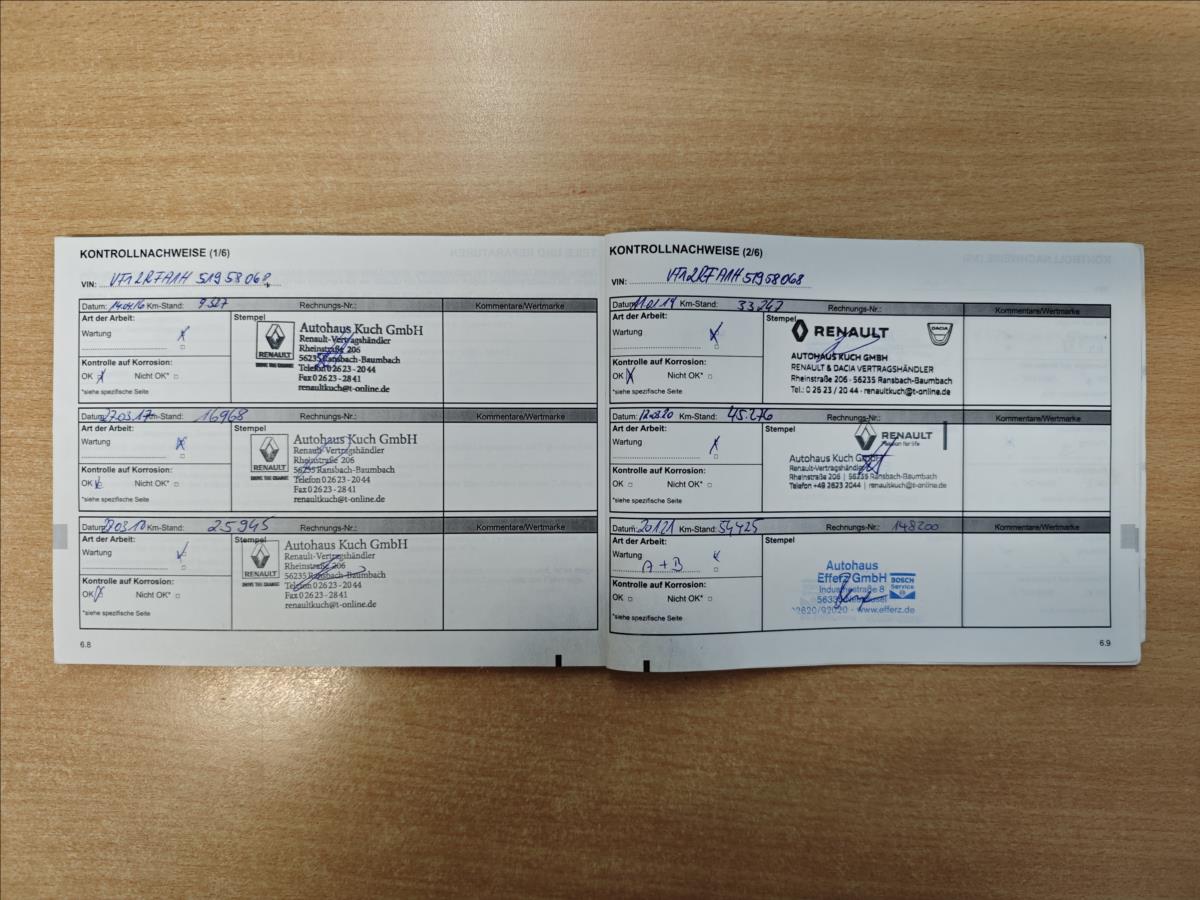 KONTROLLNACHWEISE (1/6)
VIN: VF12RFA1H 51958068
Datum: 14.04.16 Km-Stand: 9327 Rechnungs-Nr.: Kommentare/Wertmarke
Art der Arbeit:
Wartung
Kontrolle auf Korrosion:
OK Nicht OK*
*siehe spezifische Seite
Stempel
RENAULT
DRIVE THE CHANGE
Autohaus Kuch GmbH
Renault-Vertragshändler
Rheinstraße 206
56235 Ransbach-Baumbach
Telefon 0 26 23 - 20 44
Fax 0 26 23 - 28 41
renaultkuch@t-online.de
Datum: 27.03.17 Km-Stand: 16968
Art der Arbeit:
Wartung
Kontrolle auf Korrosion:
OK Nicht OK*
*siehe spezifische Seite
Stempel
RENAULT
DRIVE THE CHANGE
Autohaus Kuch GmbH
Renault-Vertragshändler
Rheinstraße 206
56235 Ransbach-Baumbach
Telefon 0 26 23 - 20 44
Fax 0 26 23 - 28 41
renaultkuch@t-online.de
Km-Stand: 25945 Rechnungs-Nr.: Kommentare/Wertmarke
Art der Arbeit:
Wartung
Kontrolle auf Korrosion:
OK Nicht OK*
*siehe spezifische Seite
Stempel
RENAULT
DRIVE THE CHANGE
Autohaus Kuch GmbH
Renault-Vertragshändler
Rheinstraße 206
56235 Ransbach-Baumbach
Telefon 0 26 23 - 20 44
Fax 0 26 23 - 28 41
renaultkuch@t-online.de
6.8
KONTROLLNACHWEISE (2/6)
VIN: VF12RFA1H 51958068
Datum: 11.01.19 Km-Stand: 33242 Rechnungs-Nr.: Kommentare/Wertmarke
Art der Arbeit:
Wartung
Kontrolle auf Korrosion:
OK Nicht OK*
*siehe spezifische Seite
Stempel
RENAULT
DACIA
AUTOHAUS KUCH GMBH
RENAULT & DACIA VERTRAGSHÄNDLER
Rheinstraße 206 · 56235 Ransbach-Baumbach
Tel.: 0 26 23 / 20 44 · renaultkuch@t-online.de
Datum: 12.03.20 Km-Stand: 45.276 Rechnungs-Nr.: Kommentare/Wertmarke
Art der Arbeit:
Wartung
Kontrolle auf Korrosion:
OK Nicht OK*
*siehe spezifische Seite
Stempel
RENAULT
Passion for life
Autohaus Kuch GmbH
Renault-Vertragshändler
Rheinstraße 206 | 56235 Ransbach-Baumbach
Telefon +49 2623 2044 | renaultkuch@t-online.de
Km-Stand: 54425 Rechnungs-Nr.: 148200 Kommentare/Wertmarke
Art der Arbeit:
Wartung
A + B
Kontrolle auf Korrosion:
OK Nicht OK*
*siehe spezifische Seite
Stempel
Autohaus
Efferz GmbH
Industriestraße 8
BOSCH
Service
02620/92020 - www.efferz.de
6.9